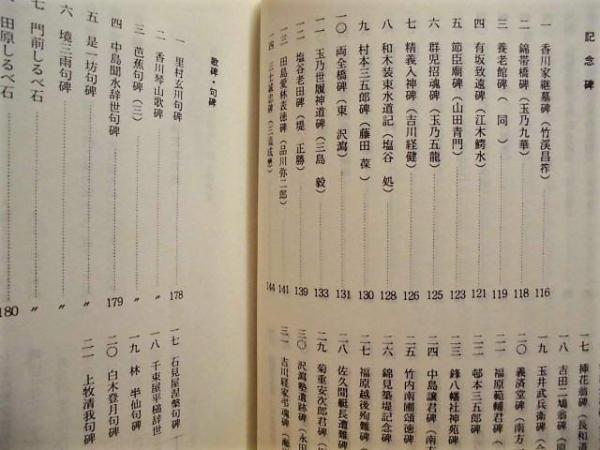 記念碑
一 香川家継墓碑(竹溪昌筰) 116
二 錦帯橋碑(玉乃九華) 118
三 養老館碑(同) 119
四 有坂致遠碑(江木鰐水) 121
五 節臣廟碑(山田青門) 123
六 群児招魂碑(玉乃五龍) 125
七 精義人神碑(吉川経健) 126
八 和木装束水道記(塩谷 処) 128
九 村本三五郎碑(藤田 葆) 130
一〇 両全橋碑(東 沢瀉) 131
一一 玉乃世履神道碑(三島 毅) 133
一二 塩谷老田碑(堤 正勝) 139
一三 田島愛林表徳碑(品川弥二郎) 141
一四 三士誠忠碑 144
一七 挿花翁碑(長和道
一八 吉田二場翁碑(原
一九 玉井武兵衛碑
二〇 義済堂碑(南方
二一 福原範輔君碑(
二二 邨本三五郎碑
二三 鋒八幡社神苑碑
二四 中島譲君碑(南方
二五 竹内南圃頌徳碑
二六 錦見築堤記念碑
二七 福原越後殉難碑
二八 佐久間艇長遭難碑
二九 菊重安次郎君碑
三〇 沢瀉塾遺跡碑(永田
三一 吉川経家弔魂碑
歌碑・句碑
一 里村玄川句碑 178
二 香川琴山歌碑 〃
三 芭蕉句碑(三) 〃
四 中島聞水辞世句碑 179
五 是一坊句碑 〃
六 境三雨句碑 〃
七 門前しるべ石 〃
田原しるべ石 180
一七 石見屋涅槃句碑
一八 千束屋平樋辞世
一九 林 半仙句碑
二〇 白木登月句碑
二一 上牧清我句碑